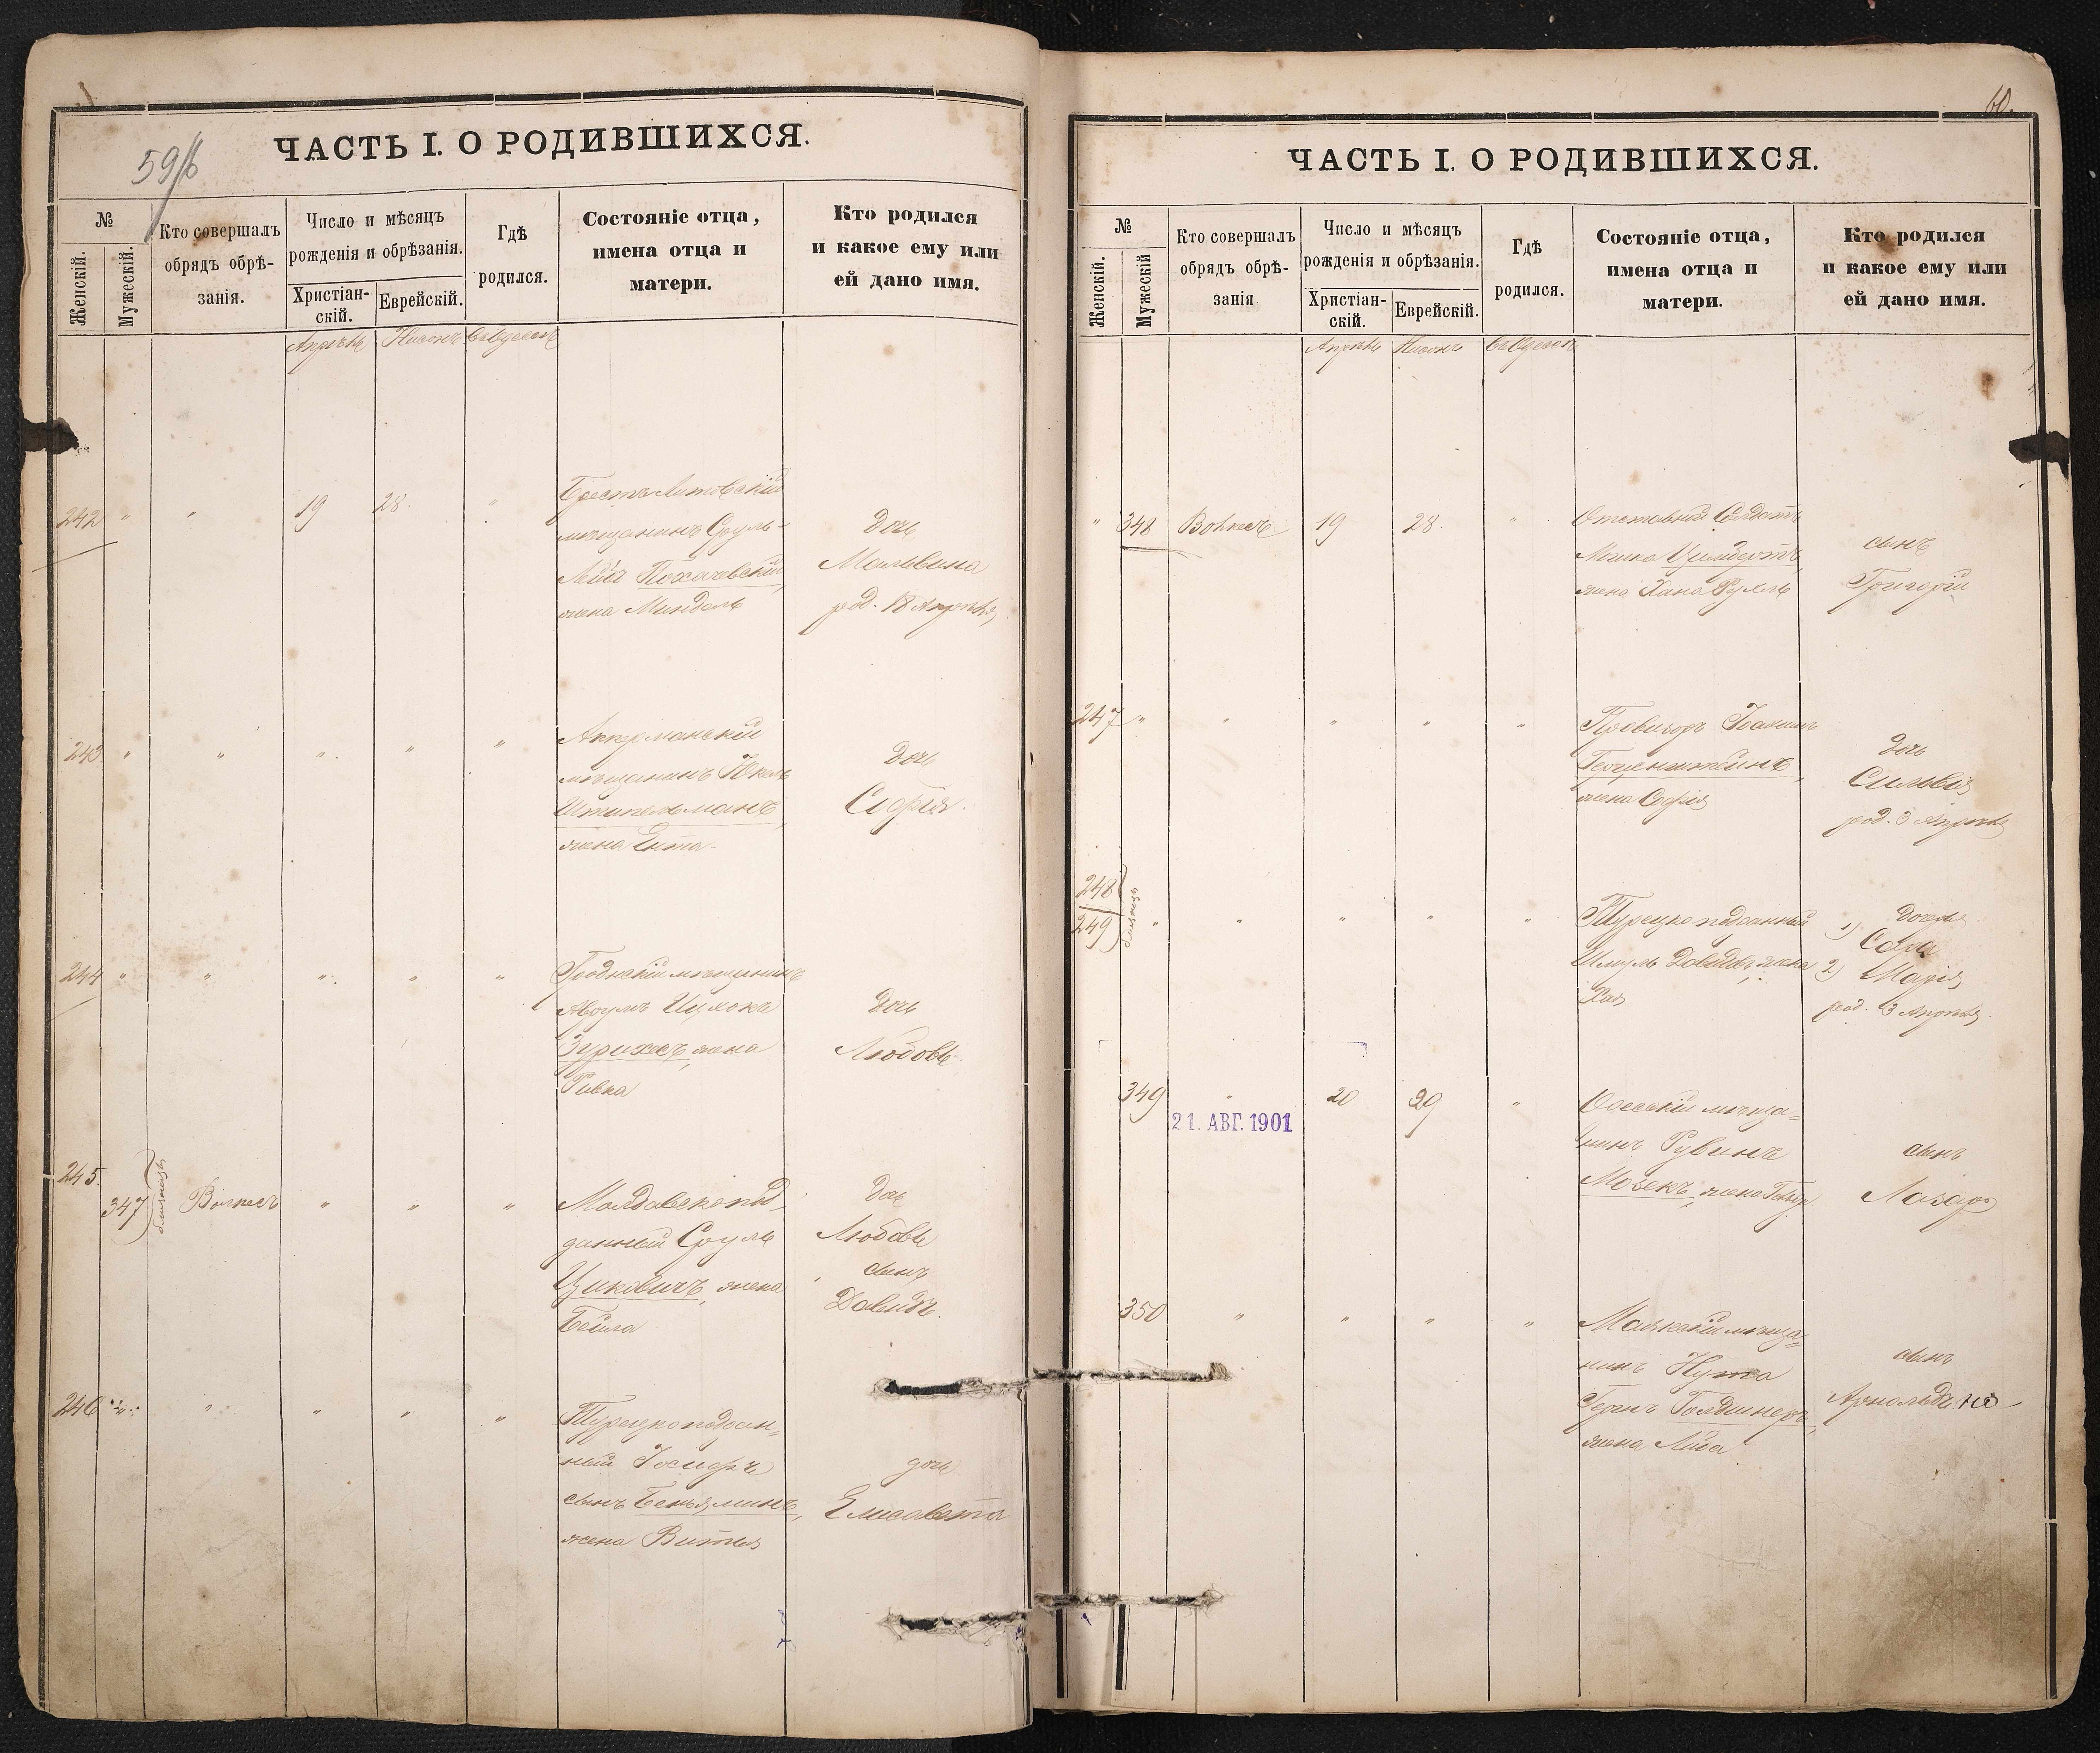 59/б
ЧАСТЬ I. О РОДИВШИХСЯ.
№
Женскій.
Мужескій.
Кто совершалъ
обрядъ обрѣ-
занія.
Число и мѣсяцъ
рожденія и обрѣзанія.
Христіан-
скій.
Еврейскій.
Гдѣ
родился.
Состояніе отца,
имена отца и
матери.
Кто родился
и какое ему или
ей дано имя.
Апрѣль Нисонъ Въ Одессѣ
242 " " 19 28. "
Брестъ Литовскій
мѣщанинъ Сруль-
Лейб Похачевскій,
жена Миндель
Дочь
Мальвина
род. 18 Апрѣля
243 " " " " "
Аккерманскій
мѣщанинъ Юкель
Штипельманъ,
жена Ента
Дочь
Софія.
244 " " " " "
Гродненскій мѣщанинъ
Абрумъ Ицхокъ
Зурихесъ, жена
Ривка
Дочь
Любовь
245.
347 близнецы Волкесъ " " "
Молдавскопод-
данный Сруль
Цикевичъ, жена
Бейла
Дочь
Любовь
сынъ
Давидъ.
246 " " " " "
Турецкоподдан-
ный Іосифъ
сынъ Беньяминъ,
жена Витля
дочь
Елисавета
60.
ЧАСТЬ I. О РОДИВШИХСЯ.
№
Женскій.
Мужескій
Кто совершалъ
обрядъ обрѣ-
занія
Число и мѣсяцъ
рожденія и обрѣзанія.
Христіан-
скій.
Еврейскій.
Гдѣ
родился.
Состояніе отца,
имена отца и
матери.
Кто родился
и какое ему или
ей дано имя.
Апрѣль Нисонъ Въ Одессѣ
" 348 Волкесъ 19 28. "
Отставной Солдатъ
жена Хана Рухль
сынъ
Григорій
247 " " " " "
Провизоръ Іоахимъ
Герценштейнъ,
жена Софія
Дочь
Сильвія
род. 3 Апрѣля
248
249 близнецы " " " " "
Турецкоподданный
Шмуль Давидъ, жена
Хая
Дочери
1) Сара
2) Марія
род. 13 Апрѣля.
349 " 20 29 "
21. АВГ. 1901
Одесскій мѣща-
нинъ Рувинъ
Мозекъ, жена
сынъ
Лазарь
350 " " " "
Маякскій мѣща-
нинъ Нута
Герш Голдинеръ,
жена Либа
сынъ
Арнольдъ